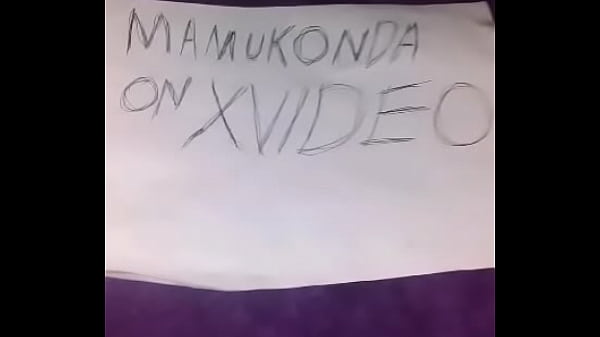 MAMUKONDA
ON XVIDEO